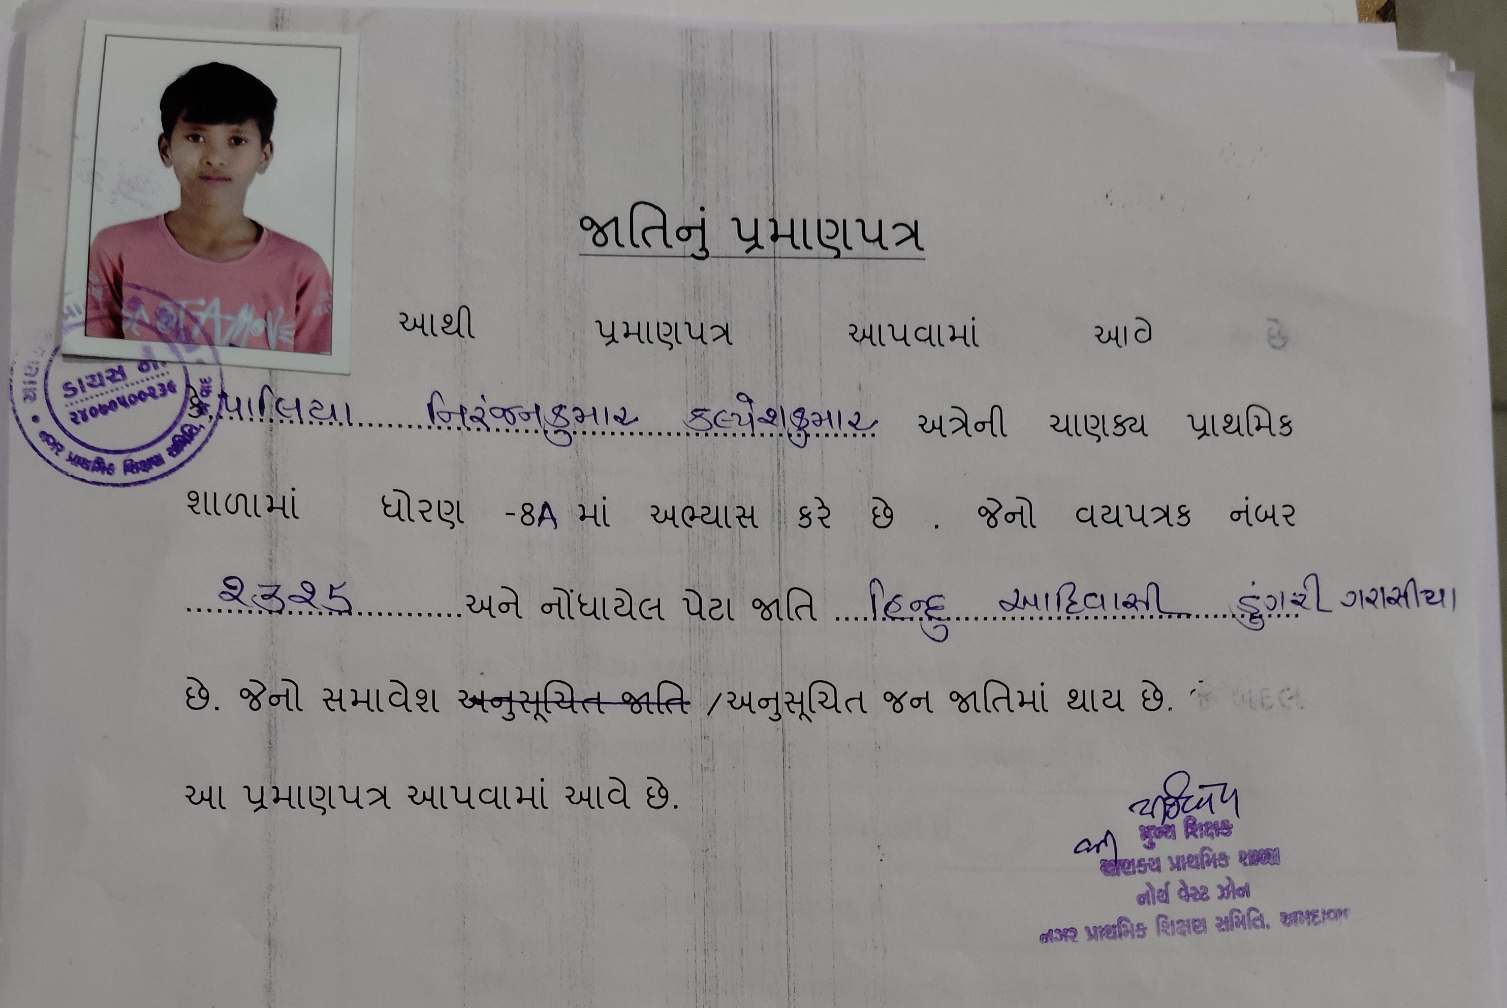 જાતિનું પ્રમાણપત્ર
આથી પ્રમાણપત્ર આપવામાં આવે છે
નિરંજનકુમાર કલ્પેશકુમાર અત્રેની ચાણક્ય પ્રાથમિક
શાળામાં ધોરણ -8A માં અભ્યાસ કરે છે . જેનો વયપત્રક નંબર
૨૩૨૫ અને નોંધાયેલ પેટા જાતિ હિન્દુ આદિવાસી ડુંગરી ગરાસીયા
છે. જેનો સમાવેશ અનુસૂચિત જાતિ /અનુસૂચિત જન જાતિમાં થાય છે. બદલ
આ પ્રમાણપત્ર આપવામાં આવે છે.
મુખ્ય શિક્ષક
ચાણક્ય પ્રાથમિક શાળા
નોર્થ વેસ્ટ ઝોન
નગર પ્રાથમિક શિક્ષણ સમિતિ, અમદાવાદ
ડાયસ નં.
નગર પ્રાથમિક શિક્ષણ સમિતિ,